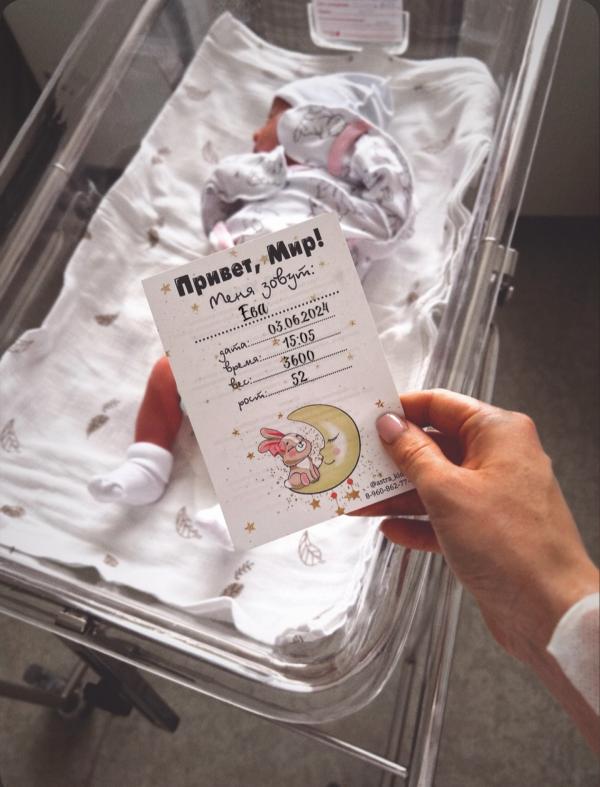 Привет, Мир!
Меня зовут:
Ева
дата: 03.06.2024
время: 15:05
вес: 3600
рост: 52
@astra_kid
8-960-862-77